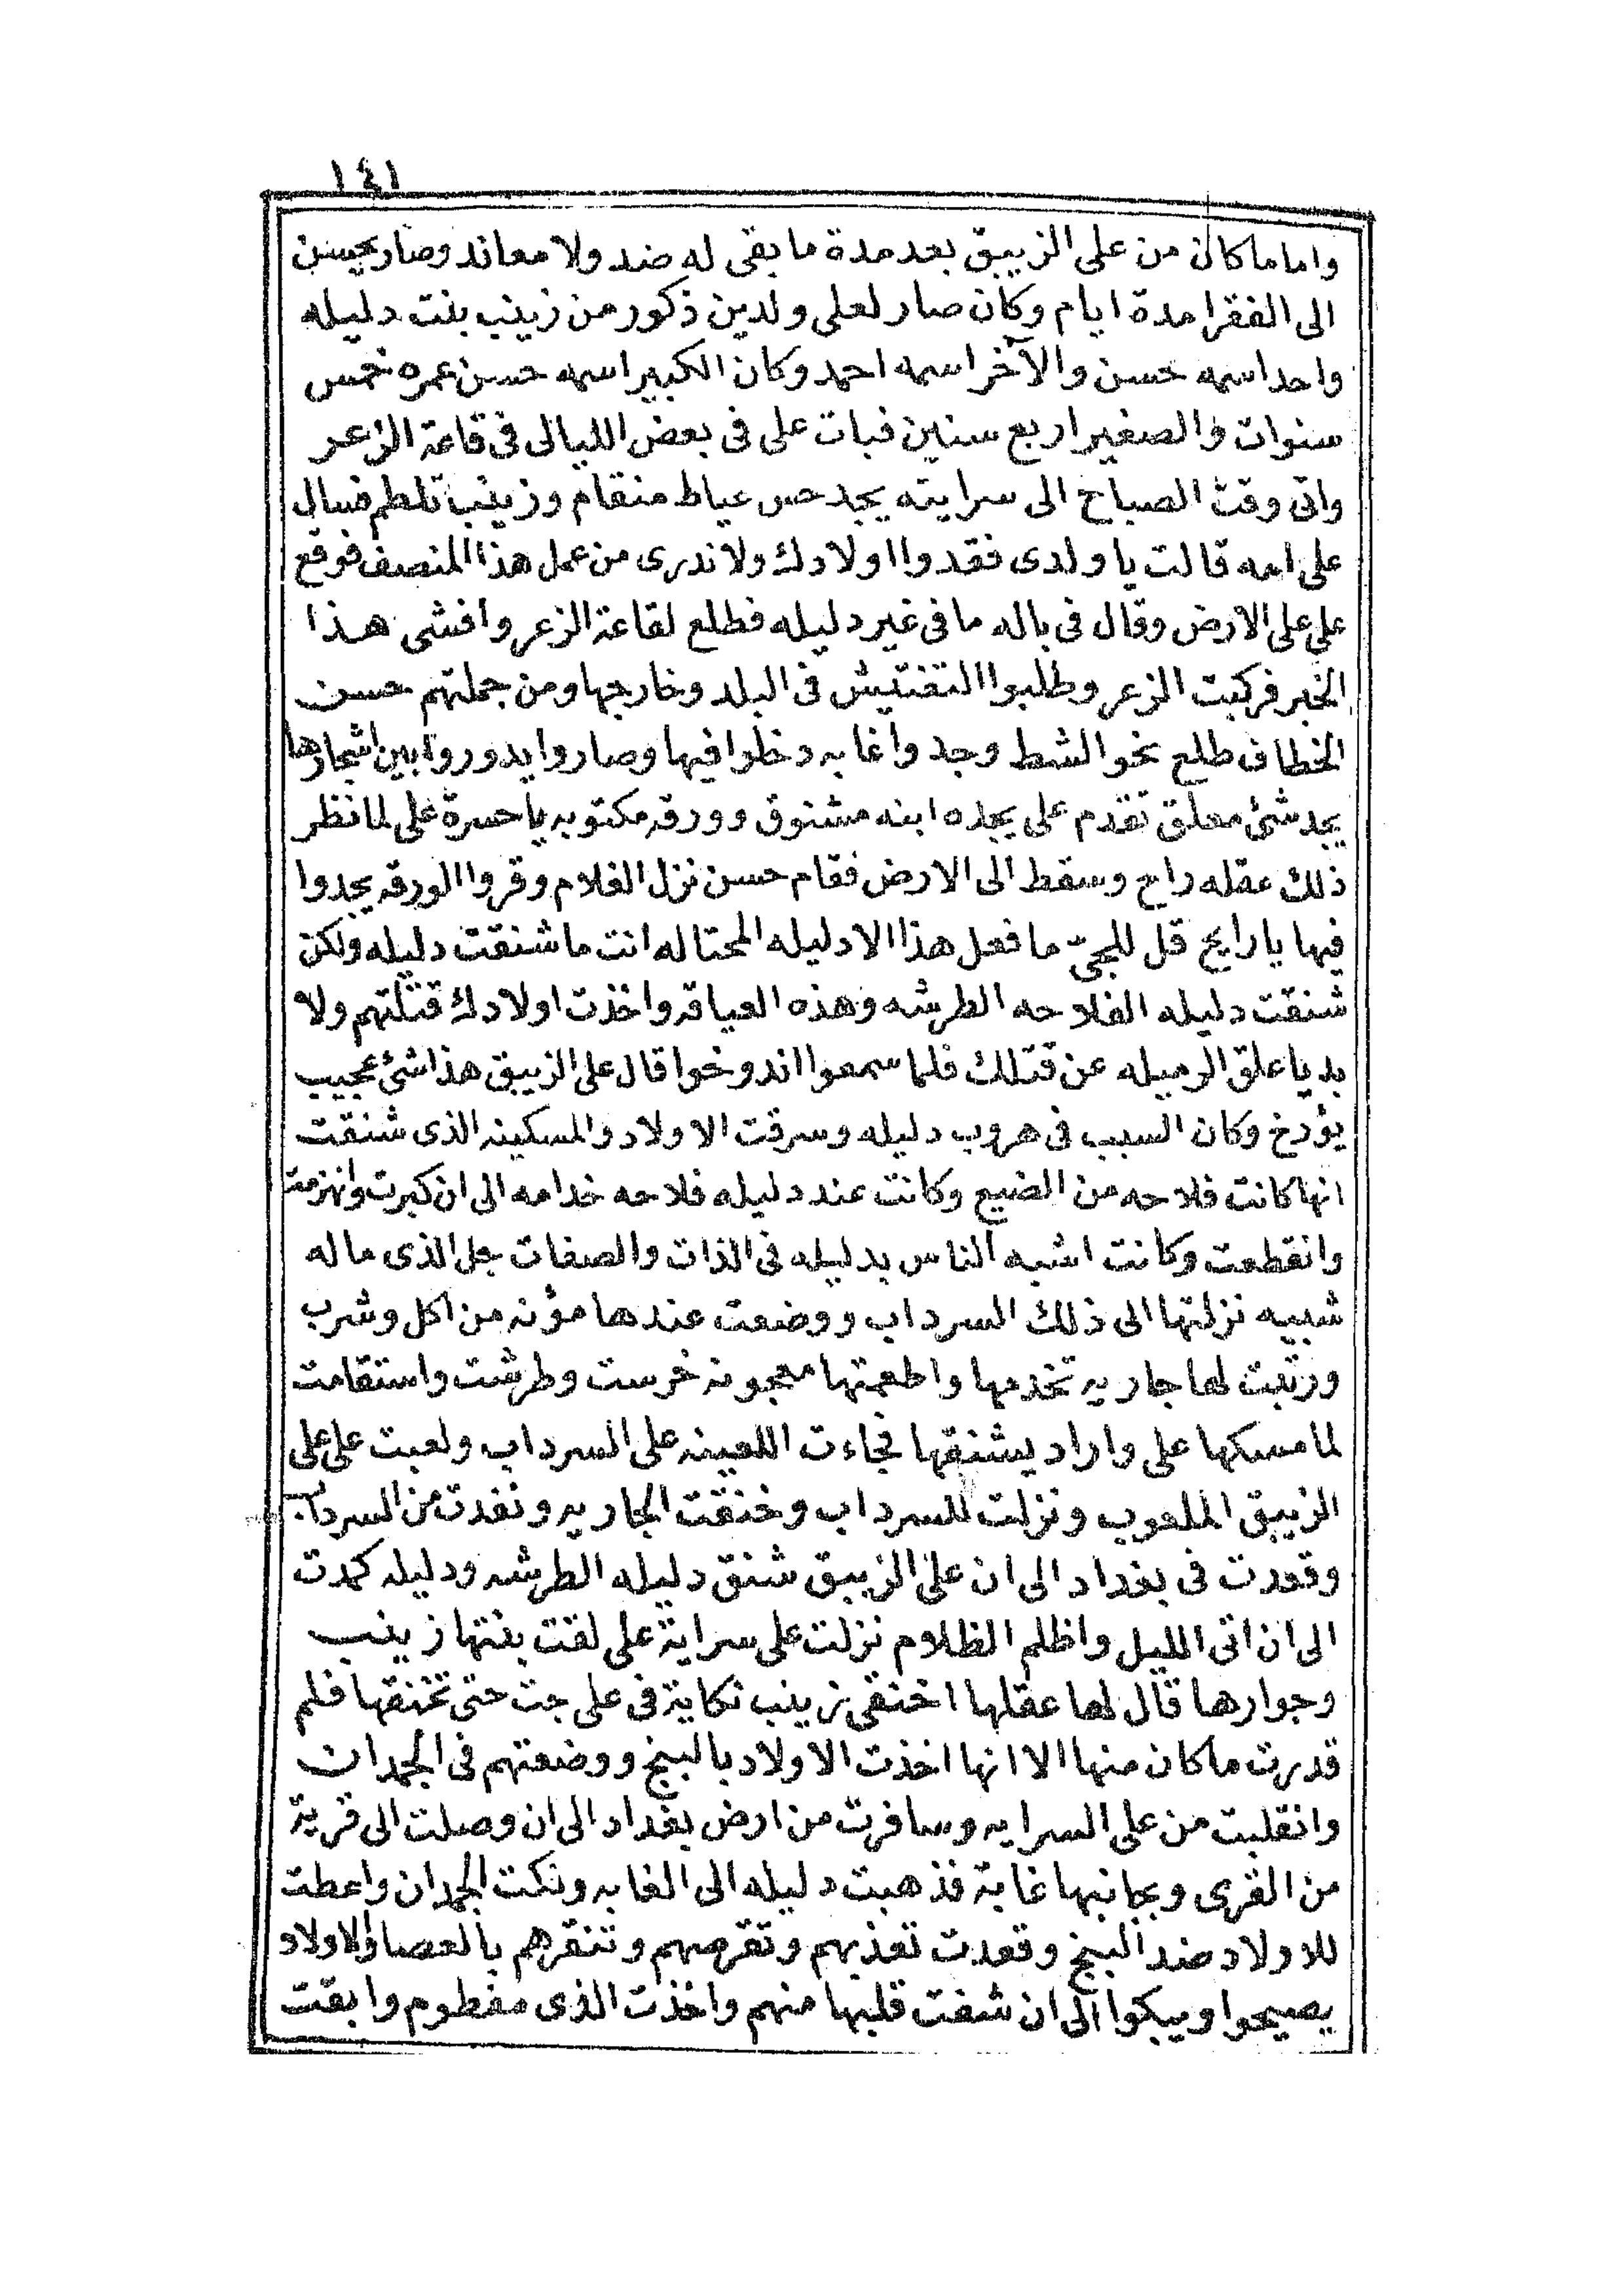 ١٤١
واما ما كان من على الزيبق بعد مدة ما بقى له ضد ولا معاند وصار يحسن
الى الفقرا مدة ايام وكان صار لعلى ولدين ذكور من زينب بنت دليله
واحد اسمه حسن والآخر اسمه احمد وكان الكبير اسمه حسن عمره خمس
سنوات والصغير اربع سنين فبات على فى بعض الليالى فى قاعة الزعر
واتى وقت الصباح الى سرايته يجد حس عياط منقام وزينب تلطم فسال
على امه قالت يا ولدى فقدوا اولادك ولا ندرى من عمل هذا المنصف فوقع
على على الارض وقال فى باله ما فى غير دليله فطلع لقاعة الزعر وافشى هذا
الخبر فركبت الزعر وطلبوا التفتيش فى البلد وخارجها ومن جملتهم حسن
الخطاف طلع نحو الشط وجدوا غابه دخلوا فيها وصاروا يدوروا بين اشجارها
يجد شئ معلق تقدم على يجده ابنه مشنوق وورقه مكتوبه يا حسرة على لما نظر
ذلك عقله راح وسقط الى الارض فقام حسن نزل الغلام وقروا الورقه يجدوا
فيها يا رايح قل للجىّ ما فعل هذا الا دليله المحتاله انت ما شنقت دليله ولكن
شنقت دليله الفلاحه الطرشه وهذه العياقه واخذت اولادك قتلتهم ولا
بد يا علق الرميله عن قتلك فلما سمعوا اندوخوا قال على الزيبق هذا شئ عجيب
يؤرخ وكان السبب فى هروب دليله وسرقت الاولاد والمسكينه الذى شنقت
انها كانت فلاحه من الضيع وكانت عند دليله فلاحه خدامه الى ان كبرت وانهزمت
وانقطعت وكانت اشبه الناس بدليله فى الذات والصفات جل الذى ما له
شبيه نزلتها الى ذلك السرداب ووضعت عندها مؤنه من اكل وشرب
ورتبت لها جاريه تخدمها واطعمتها معجونه خرست وطرشت واستقامت
لما مسكها على واراد يشنقها فجاءت اللعينه على السرداب ولعبت على على
الزيبق الملعوب ونزلت للسرداب وخنقت الجاريه ونفدت من السرداب
وقورت فى بغداد الى ان على الزيبق شنق دليله الطرشه ودليله كمدت
الى ان اتى الليل واظلم الظلام نزلت على سراية على لقت بنتها زينب
وجوارها قال لها عقلها اخنقى زينب نكاية فى على جت حتى تخنقها فلم
قدرت ما كان منها الا انها اخذت الاولاد بالبنج ووضعتهم فى الجمدان
وانقلبت من على السرايه وسافرت من ارض بغداد الى ان وصلت الى قرية
من القرى وبجانبها غابة فذهبت دليله الى الغابه ونكت الجمدان واعطت
للاولاد ضد البنج وقعدت تعذبهم وتقرصهم وتنقرهم بالعصا والاولاد
يصيحوا ويبكوا الى ان شفت قلبها منهم واخذت الذى مفطوم وابقت